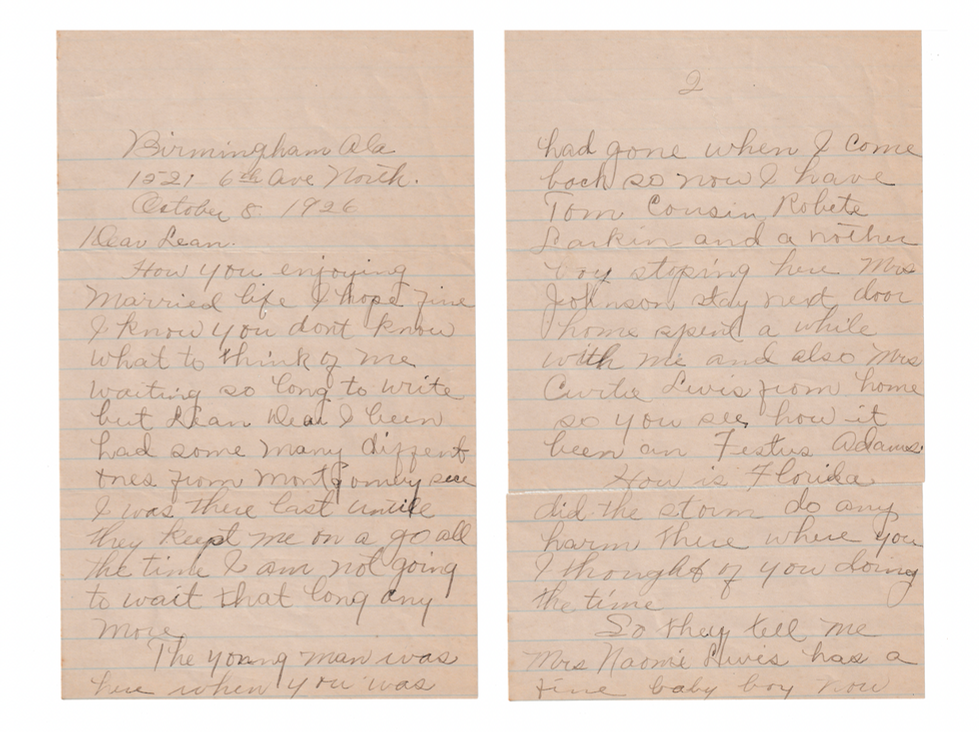 Birmingham Ala
1521 6th Ave North.
October 8. 1926
Dear Lean.
How you enjoying
Married life I hope fine
I know you dont know
what to think of me
waiting so long to write
but Lean Dear I been
had some many diffent
ones from Montgomery
I was there last untile
they keept me on a go all
the time I am not going
to wait that long any
more,
The young man was
here when you was
2
had gone when I come
back so now I have
Tom Cousin Robete
Larkin and a nother
boy stoping here Mrs
Johnson stay next door
home spent a while
with me and also Mrs
Curtie Lewis from home
so you see, how it
been an Festus Adams.
How is Florida
did the storm do any
harm there where you
I thought of you doing
the time
So they tell me
Mrs Naomie Lewis has a
fine baby boy now